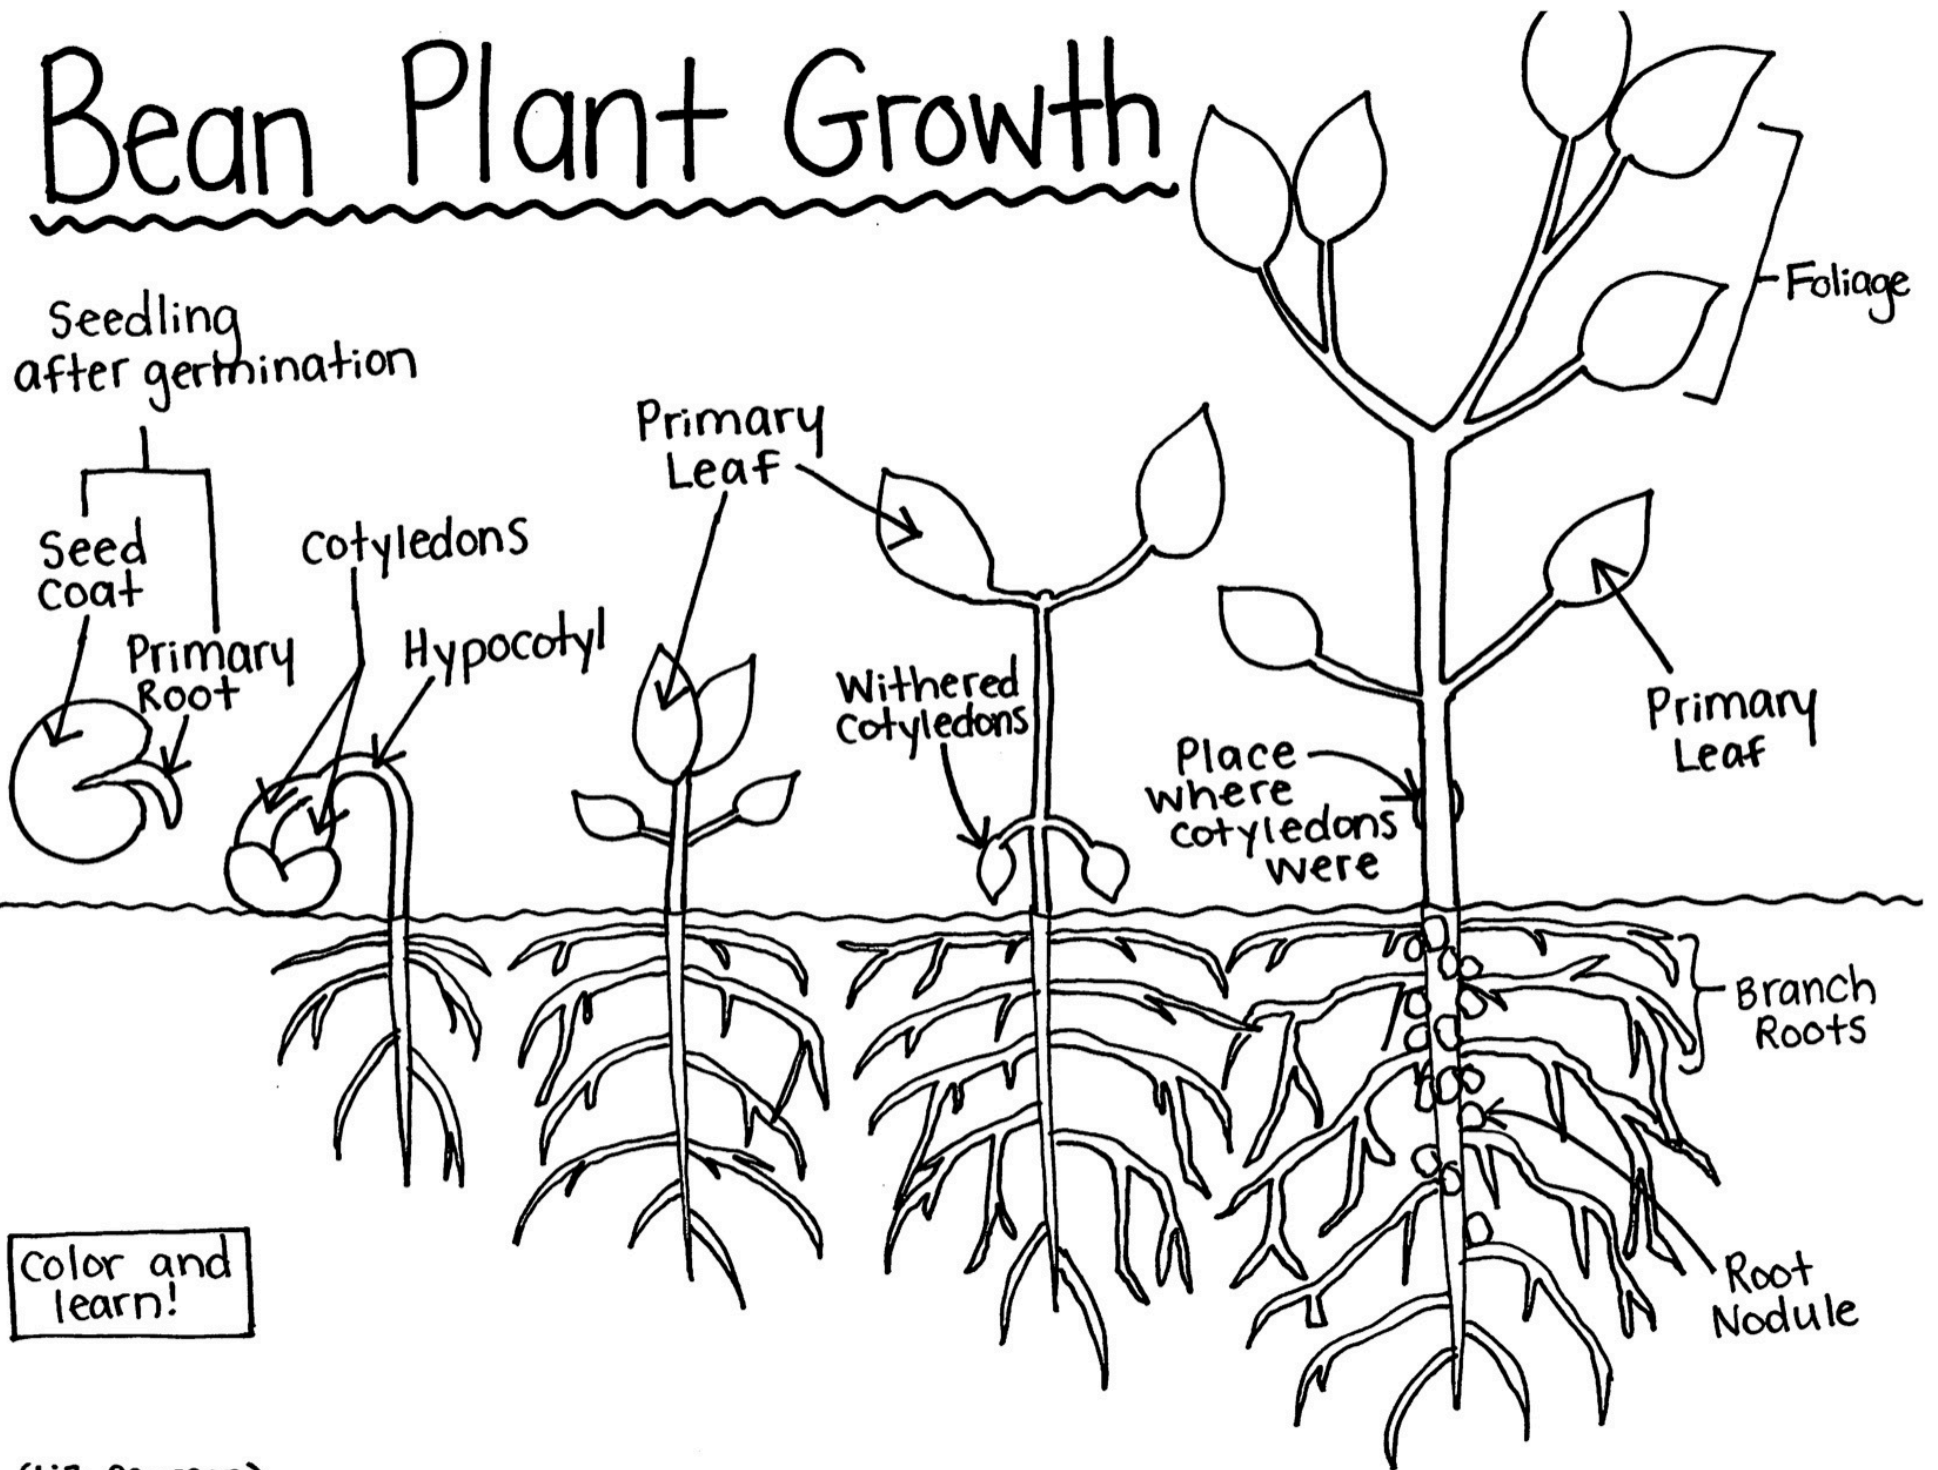 Bean Plant Growth
Seedling
after germination
Seed
Coat
Primary
Root
Cotyledons
Hypocotyl
Primary
Leaf
Withered
Cotyledons
Place
where
cotyledons
were
Foliage
Primary
Leaf
Branch
Roots
Root
Nodule
Color and
learn!